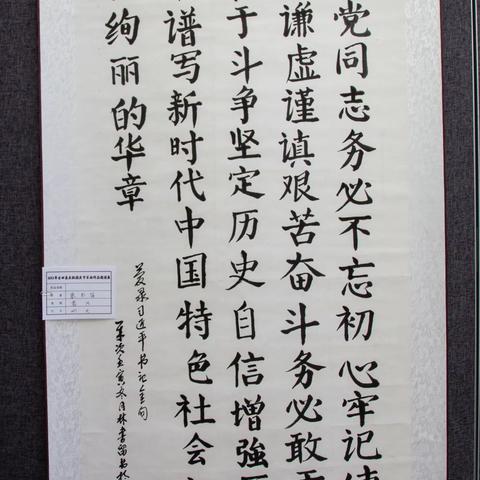 党同志务必不忘初心牢记
谦虚谨慎艰苦奋斗务必敢
于斗争坚定历史自信增強
谱写新时代中国特色社会
绚丽的华章
录习近平书记金句
次壬寅冬月林書留书於